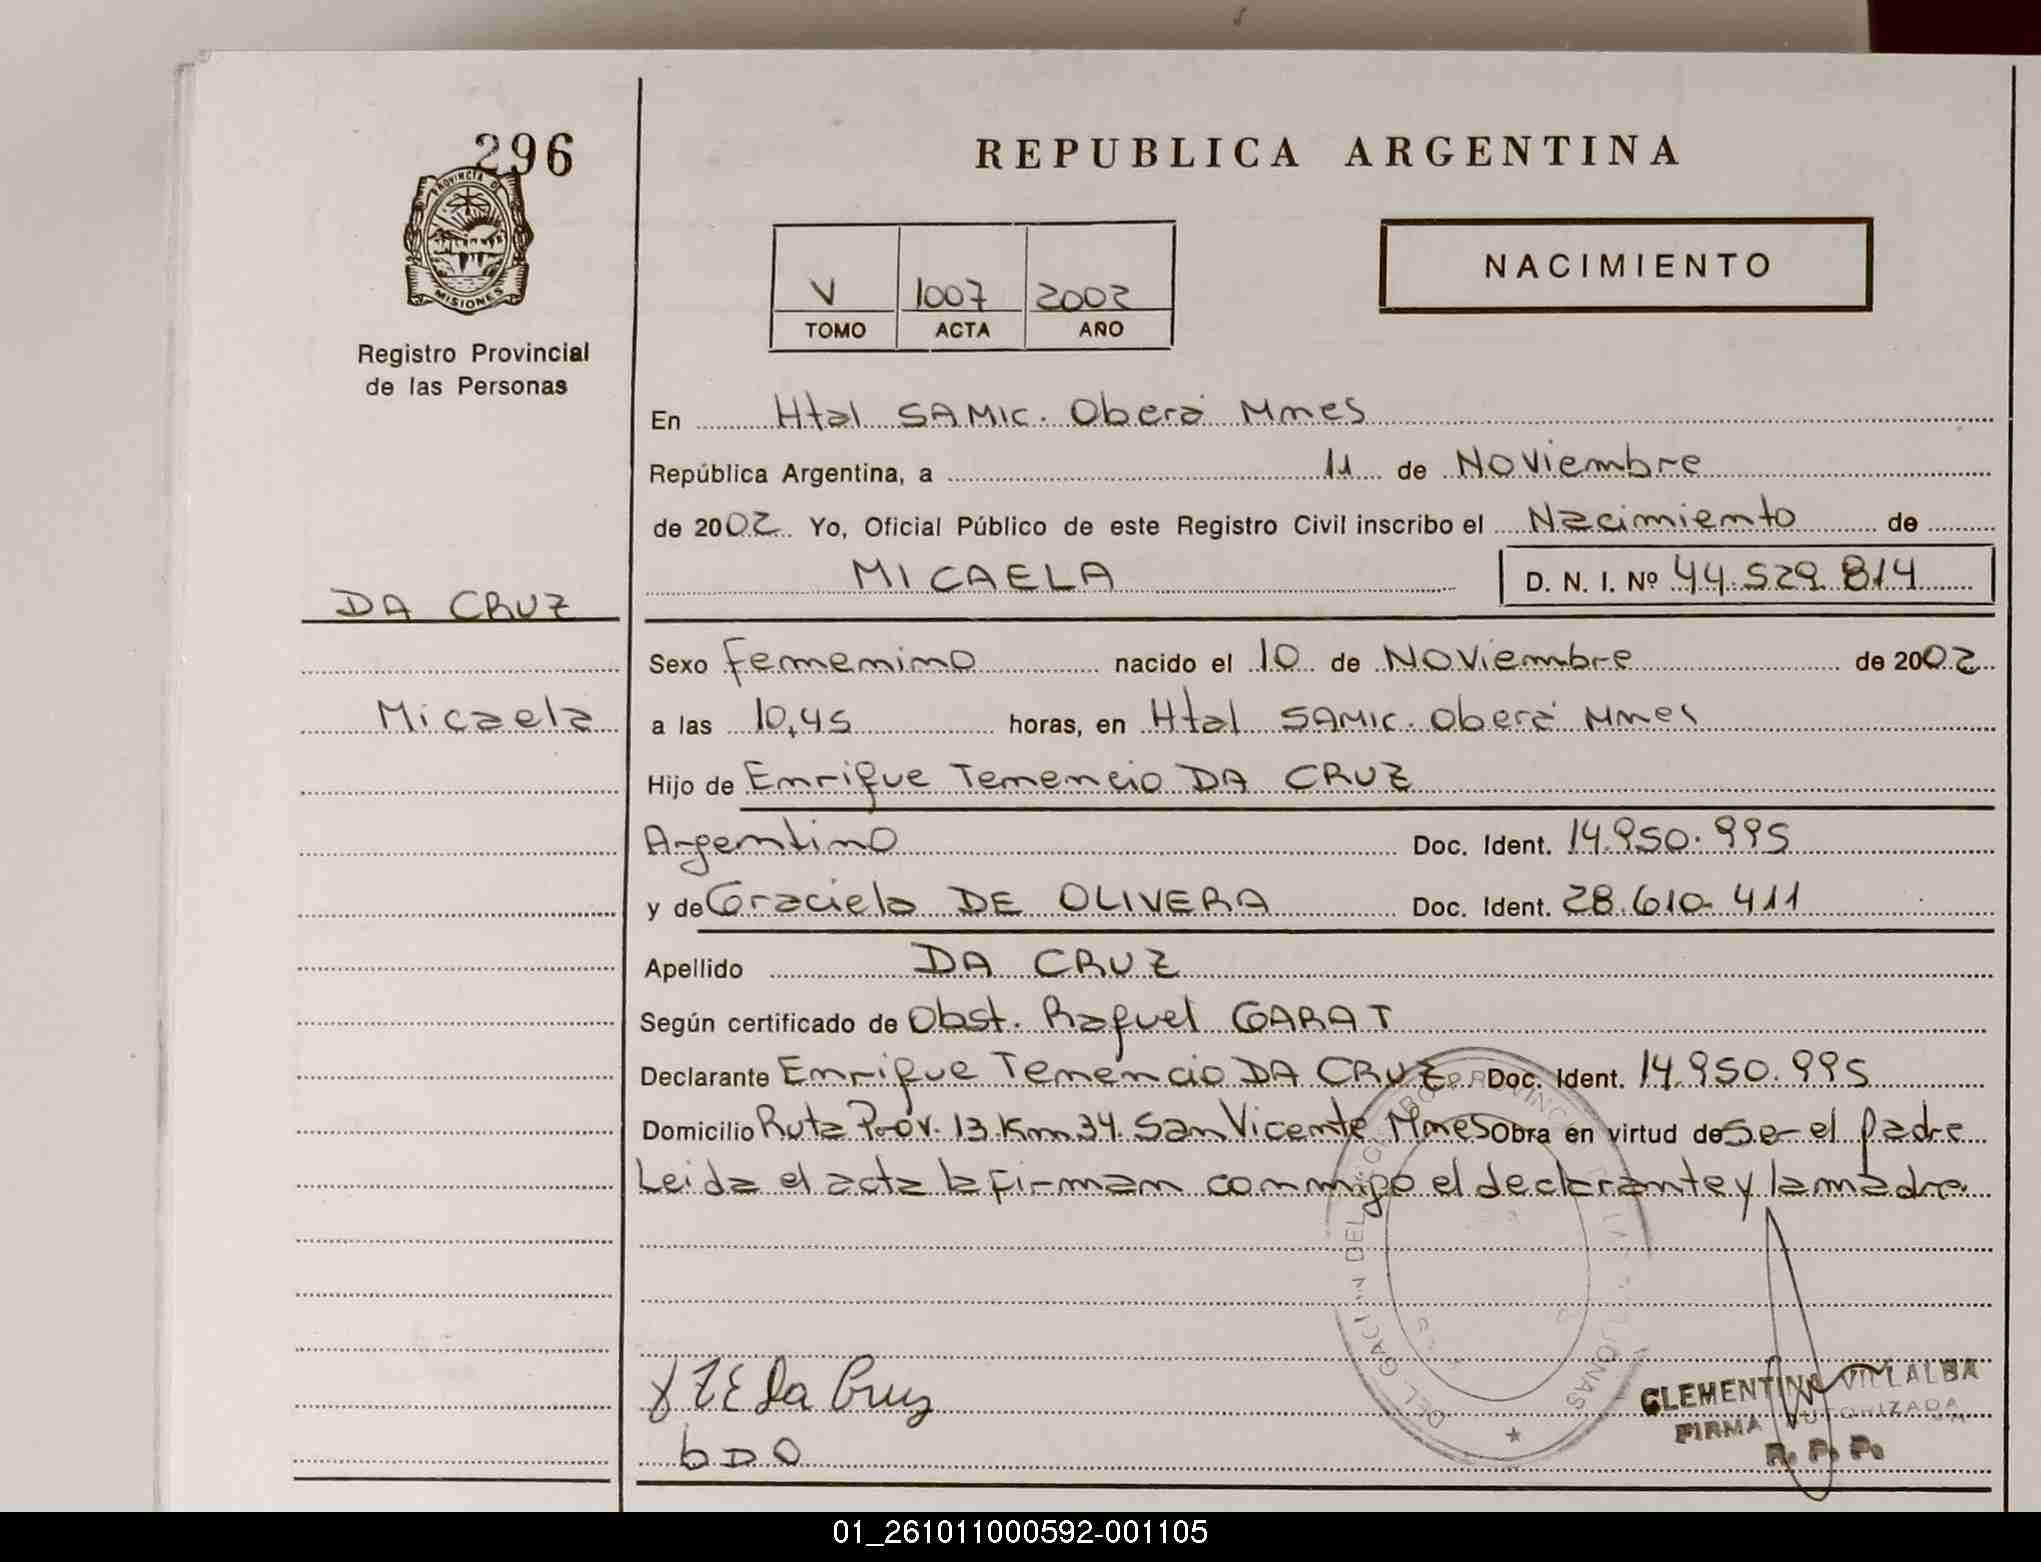 296
PROVINCIA DE
MISIONES
Registro Provincial
de las Personas
REPUBLICA ARGENTINA
V 1007 2002
TOMO ACTA AÑO
NACIMIENTO
En Htal SAMIC. Oberá Mnes
República Argentina, a 11 de Noviembre
de 2002 Yo, Oficial Público de este Registro Civil inscribo el Nacimiento de
MICAELA D. N. I. Nº 44.529.814
DA CRUZ
Sexo Femenino nacido el 10 de Noviembre de 2002
Micaela
a las 10,45 horas, en Htal SAMIC. Oberá Mnes
Hijo de Enrique Temencio DA CRUZ
Argentino Doc. Ident. 14.950.995
y de Graciela DE OLIVERA Doc. Ident. 28.610.411
Apellido DA CRUZ
Según certificado de Obst. Raquel GARAT
Declarante Enrique Temencio DA CRUZ Doc. Ident. 14.950.995
Domicilio Ruta Prov. 13 Km 34. San Vicente Mnes Obra en virtud de Ser el padre
Leida el acta la firman conmigo el declarante y la madre
Da Cruz
CLEMENTINA VILLALBA
FIRMA AUTORIZADA
R. P. P.
b D O
01_261011000592-001105